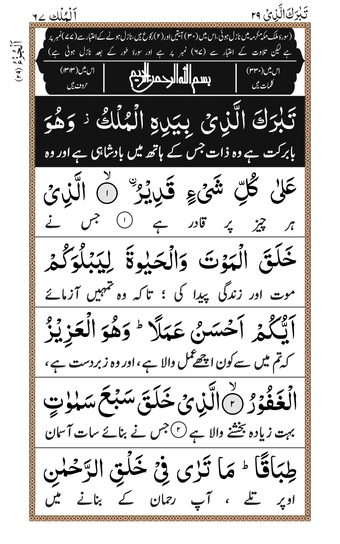 تَبٰرَكَ الَّذِىْ ٢٩
اَلْمُلْك ٦٧
اَلْجُزْءُ (٢٩)
(سورۂ ملک مکہ مکرمہ میں نازل ہوئی، اس میں (٣٠) آیتیں اور (٢) رکوع ہیں، نازل ہونے کے اعتبار سے (٧٧) نمبر پر
ہے لیکن تلاوت کے اعتبار سے (٦٧) نمبر پر ہے اور سورۂ طور کے بعد نازل ہوئی ہے)
اس میں (٣٣٠) کلمات ہیں
بسم الله الرحمن الرحيم
اس میں (١٣١٣) حروف ہیں
تَبٰرَكَ الَّذِىْ بِيَدِهِ الْمُلْكُ ز وَهُوَ
بابرکت ہے وہ ذات جس کے ہاتھ میں بادشاہی ہے اور وہ
عَلٰى كُلِّ شَىْءٍ قَدِيْرُ ۙ ١ الَّذِىْ
ہر چیز پر قادر ہے ١ جس نے
خَلَقَ الْمَوْتَ وَالْحَيٰوةَ لِيَبْلُوَكُمْ
موت اور زندگی پیدا کی ؛ تاکہ وہ تمہیں آزمائے
اَيُّكُمْ اَحْسَنُ عَمَلًا ؕ وَهُوَ الْعَزِيْزُ
کہ تم میں سے کون اچھے عمل والا ہے، اور وہ زبردست ہے،
الْغَفُوْرُ ۙ ٢ الَّذِىْ خَلَقَ سَبْعَ سَمٰوٰتٍ
بہت زیادہ بخشنے والا ہے ٢ جس نے بنائے سات آسمان
طِبَاقًا ؕ مَا تَرٰى فِىْ خَلْقِ الرَّحْمٰنِ
اوپر تلے ، آپ رحمان کے بنانے میں